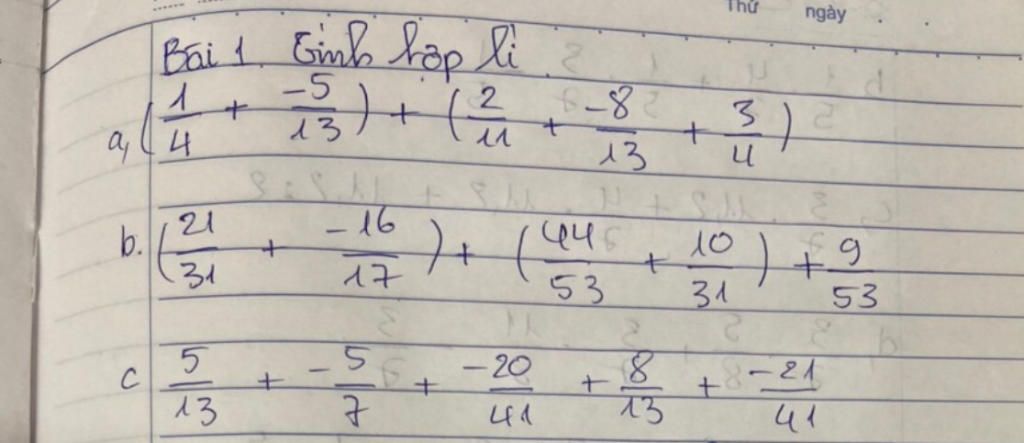 Thứ ngày . .
Bài 1. Tính hợp lí
a, (1/4 + -5/13) + (2/11 + -8/13 + 3/4)
b. (21/31 + -16/17) + (44/53 + 10/31) + 9/53
c 5/13 + -5/7 + -20/41 + 8/13 + -21/41